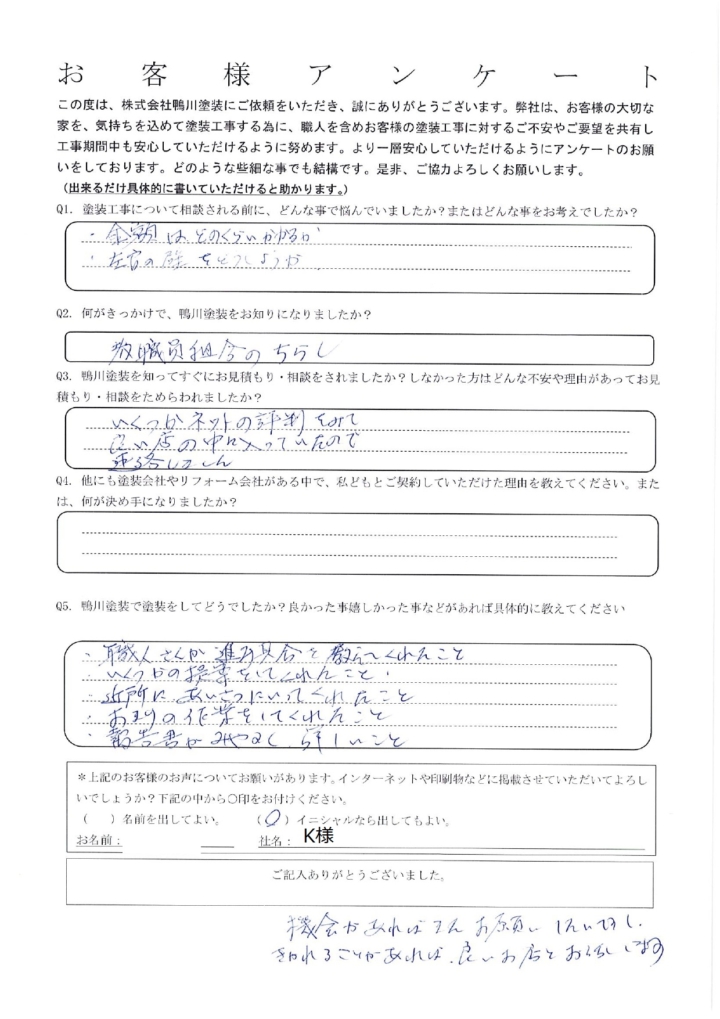 お客様アンケート
この度は、株式会社鴨川塗装にご依頼をいただき、誠にありがとうございます。弊社は、お客様の大切な
家を、気持ちを込めて塗装工事する為に、職人を含めお客様の塗装工事に対するご不安やご要望を共有し
工事期間中も安心していただけるように努めます。より一層安心していただけるようにアンケートのお願
いをしております。どのような些細な事でも結構です。是非、ご協力よろしくお願いします。
（出来るだけ具体的に書いていただけると助かります。）
Q1. 塗装工事について相談される前に、どんな事で悩んでいましたか？またはどんな事をお考えでしたか？
・金額はどのくらいかかるか
・左官の壁をどうしようか
Q2. 何がきっかけで、鴨川塗装をお知りになりましたか？
教職員組合のちらし
Q3. 鴨川塗装を知ってすぐにお見積もり・相談をされましたか？しなかった方はどんな不安や理由があってお見
積もり・相談をためらわれましたか？
いくつかネットの評判をみて
良い店の中に入っていたので
連絡しました
Q4. 他にも塗装会社やリフォーム会社がある中で、私どもとご契約していただけた理由を教えてください。また
は、何が決め手になりましたか？
Q5. 鴨川塗装で塗装をしてどうでしたか？良かった事嬉しかった事などがあれば具体的に教えてください
・職人さんが進み具合を教えてくれたこと
・いくつかの提案をしてくれたこと
・近所にあいさつにいってくれたこと
・おまけの作業をしてくれたこと
・報告書がみやすく、詳しいこと
＊上記のお客様のお声についてお願いがあります。インターネットや印刷物などに掲載させていただいてよろし
いでしょうか？下記の中から〇印をお付けください。
（　）名前を出してよい。　（〇）イニシャルなら出してもよい。
お名前：　社名：K様
ご記入ありがとうございました。
機会があればまたお願いしたいですし、
きかれることがあれば、良いお店とお伝えします